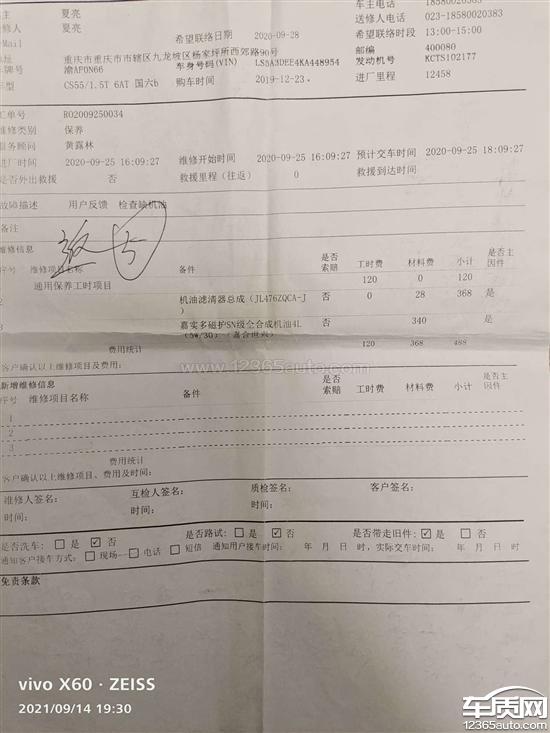 车主电话 18580020383
主 夏亮
维修人 夏亮 送修人电话 023-18580020383
-Mail 希望联络日期 2020-09-28 希望联络时段 13:00-15:00
地址 重庆市重庆市市辖区九龙坡区杨家坪所西郊路90号 邮编 400080
车牌号 渝AF0N66 车身号码(VIN) LS5A3DEE4KA448954 发动机号 KCTS102177
车型 CS55/1.5T 6AT 国六b 购车时间 2019-12-23 进厂里程 12458
汇单号 RO2009250034
维修类别 保养
服务顾问 黄露林
进厂时间 2020-09-25 16:09:27 维修开始时间 2020-09-25 16:09:27 预计交车时间 2020-09-25 18:09:27
是否外出救援 否 救援里程(往返) 0 救援到达时间
故障描述 用户反馈 检查缺机油
备注
维修信息
序号 维修项目名称 备件 是否索赔 工时费 材料费 小计 是否主因件
通用保养工时项目 120 0 120
2 机油滤清器总成(JL476ZQCA-J) 否 0 28 368 是
嘉实多磁护SN级全合成机油4L(5W/30) 否 340 是
费用统计 120 368 488
客户确认以上维修项目及费用:
新增维修信息
序号 维修项目名称 备件 是否索赔 工时费 材料费 小计 是否主因件
1
2
3
费用统计
客户确认以上维修项目、费用及时间:
维修人签名: 互检人签名: 质检签名: 客户签名:
时间: 时间: 时间:
是否洗车: 是 否 是否路试: 是 否 是否带走旧件: 是 否
通知客户接车方式: 现场 电话 短信 通知用户接车时间: 年 月 日 时, 实际交车时间: 年 月 日 时
免责条款
www.12365auto.com
vivo X60 · ZEISS
2021/09/14 19:30
车质网
12365auto.com